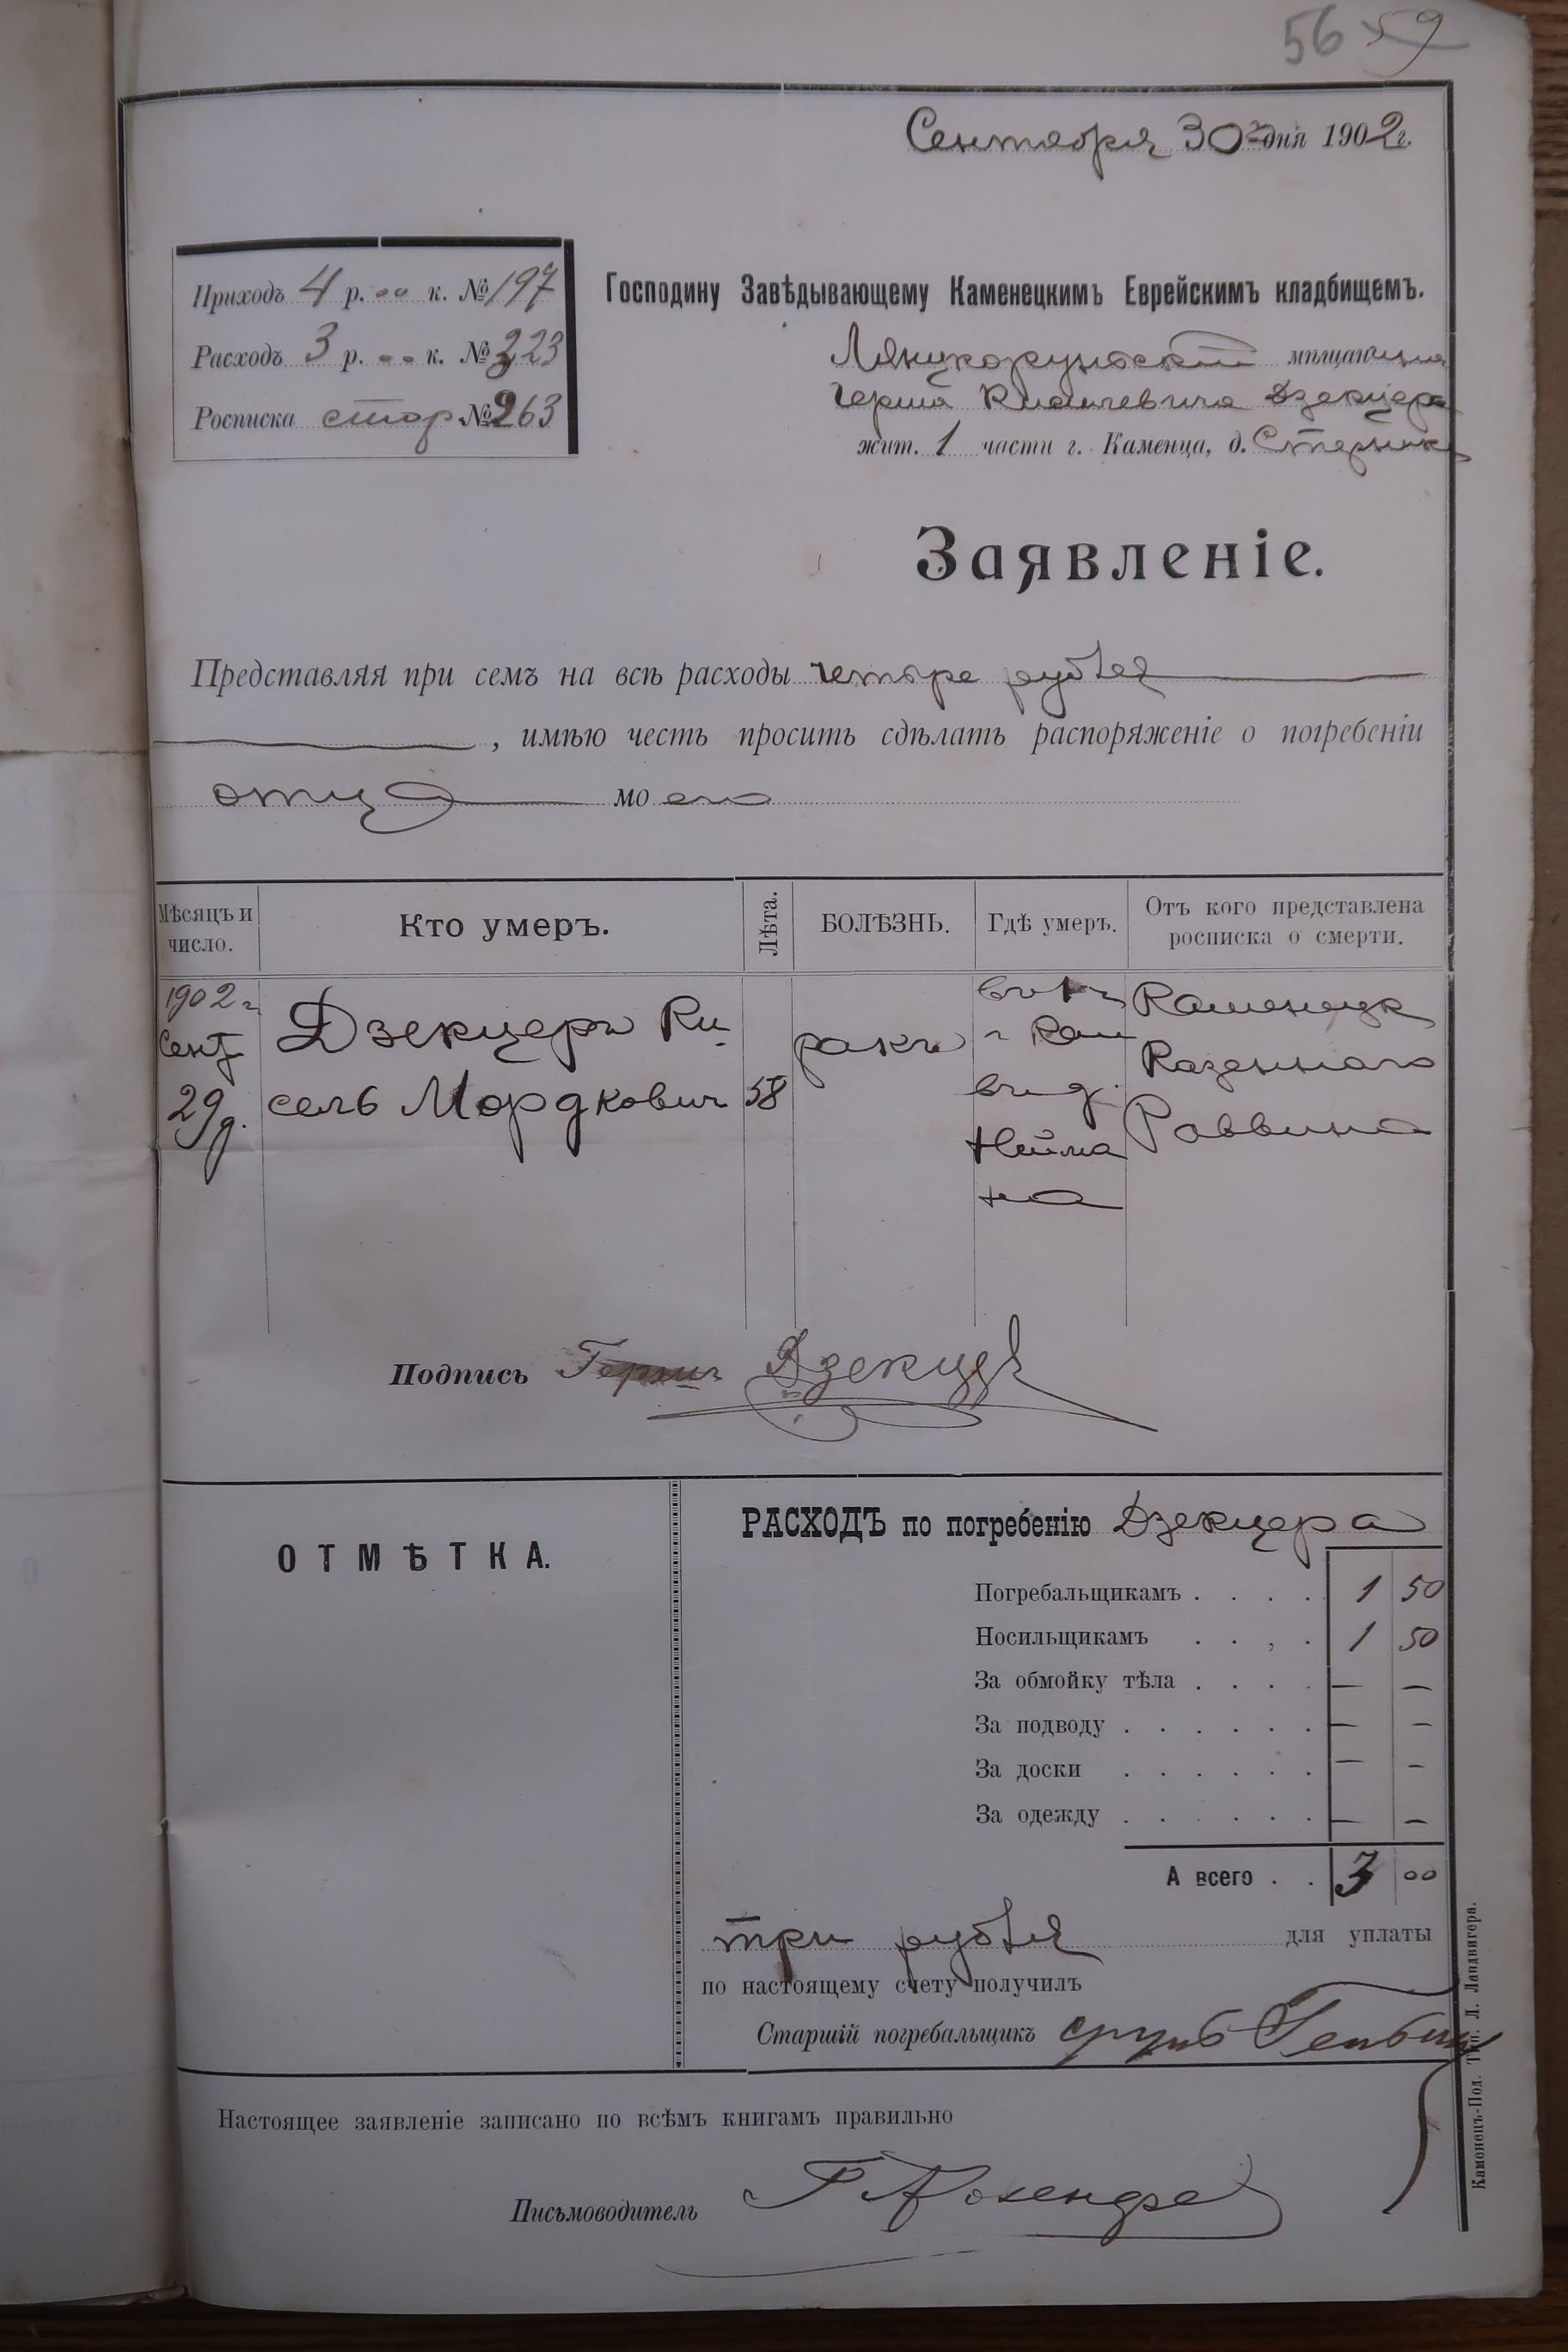 56 59
Сентября 30 дня 1902 г.
Приходъ 4 р. 00 к. № 197
Расходъ 3 р. 00 к. № 223
Росписка стор № 263
Господину Завѣдывающему Каменецкимъ Еврейскимъ кладбищемъ.
Лянцкорунскій мѣщанина
Герша Киселевича Дзекцера
жит. 1 части г. Каменца, д.
Заявленіе.
Представляя при семъ на всѣ расходы четыре рубля
, имѣю честь просить сдѣлать распоряженіе о погребеніи
отца моего
Мѣсяцъ и число.
Кто умеръ.
Лѣта.
БОЛѢЗНЬ.
Гдѣ умеръ.
Отъ кого представлена
росписка о смерти.
1902 г
Сент
29 д.
Дзекцеръ Ки
сель Мордкович
58
ракъ
г Кам
въ д.
Нейма
на
Каменецк
Казеннаго
Раввина
Подпись Герш Дзекцер
ОТМѢТКА.
РАСХОДЪ по погребенію Дзекцера
Погребальщикамъ . . . . 1 50
Носильщикамъ . . , . 1 50
За обмойку тѣла . . . . — —
За подводу . . . . . . — —
За доски . . . . . . — —
За одежду . . . . . . — —
А всего . . 3 00
три рубля для уплаты
по настоящему счету получилъ
Старшій погребальщикъ
Настоящее заявленіе записано по всѣмъ книгамъ правильно
Письмоводитель
Каменецъ-Под. Тип. Л. Ландвигера.